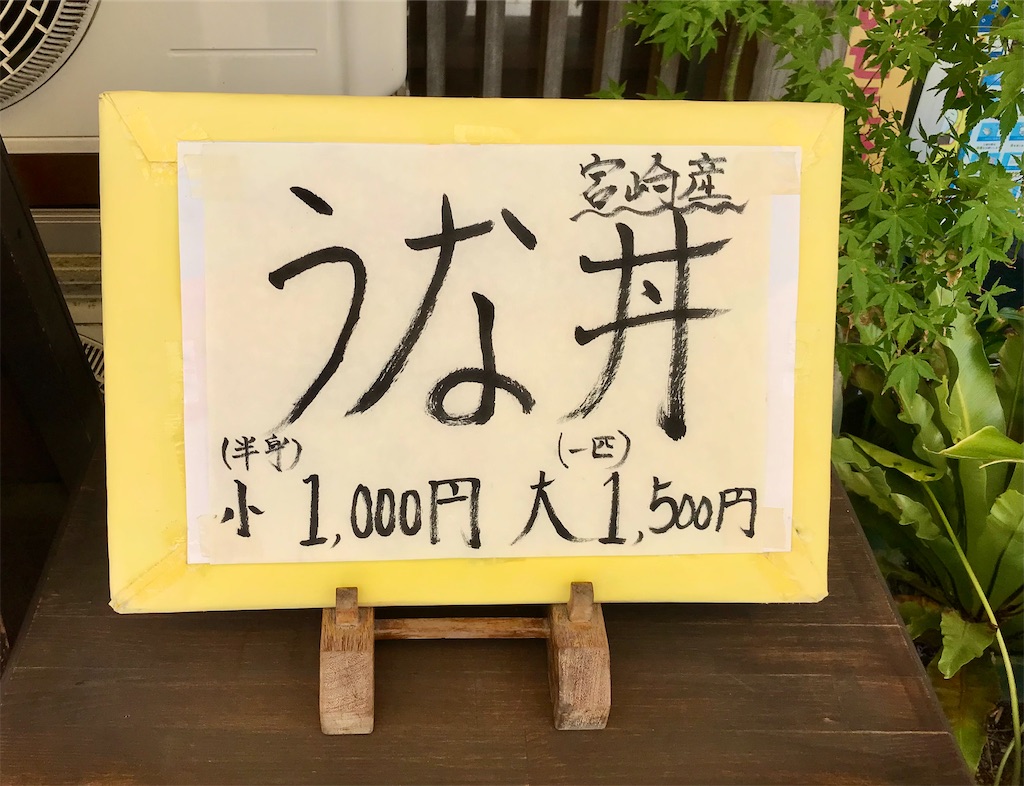 宮崎産
うな丼
(半身) (一匹)
小 1,000円 大 1,500円